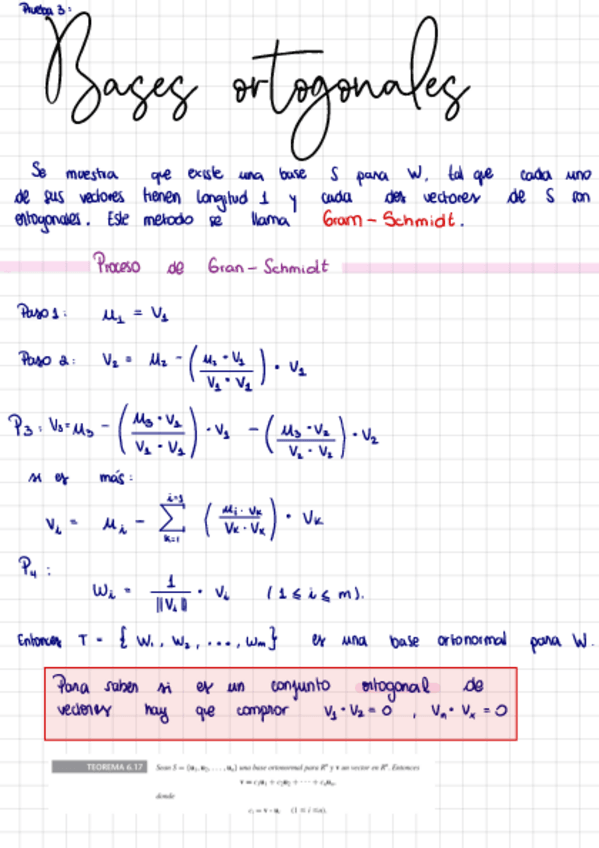 Prueba 3:
Bases ortogonales
Se muestra que existe una base S para W, tal que cada uno
de sus vectores tienen longitud 1 y cada dos vectores de S son
ortogonales. Este metodo se llama Gram-Schmidt.
Proceso de Gran-Schmidt
Paso 1: u₁ = V₁
Paso 2: V₂ = u₂ - (u₂ · V₁ / V₁ · V₁) · V₁
P3: V₃ = u₃ - (u₃ · V₁ / V₁ · V₁) · V₁ - (u₃ · V₂ / V₂ · V₂) · V₂
si es más:
Vᵢ = uᵢ - ∑ᵢ₌₁ₖ₌₁ (uᵢ · Vₖ / Vₖ · Vₖ) · Vₖ
P₄:
Wᵢ = 1 / ||Vᵢ|| · Vᵢ (1 ≤ i ≤ m).
Entonces T = { W₁, W₂, ..., Wm} es una base ortonormal para W.
Para saber si es un conjunto ortogonal de
vectores hay que compror V₁ · V₂ = 0 , Vₙ · Vₓ = 0
TEOREMA 6.17 Sean S = {u₁, u₂, . . . , uₙ} una base ortonormal para Rⁿ y v un vector en Rⁿ. Entonces
v = c₁u₁ + c₂u₂ + ··· + cₙuₙ,
donde
cᵢ = v · uᵢ (1 ≤ i ≤ n).